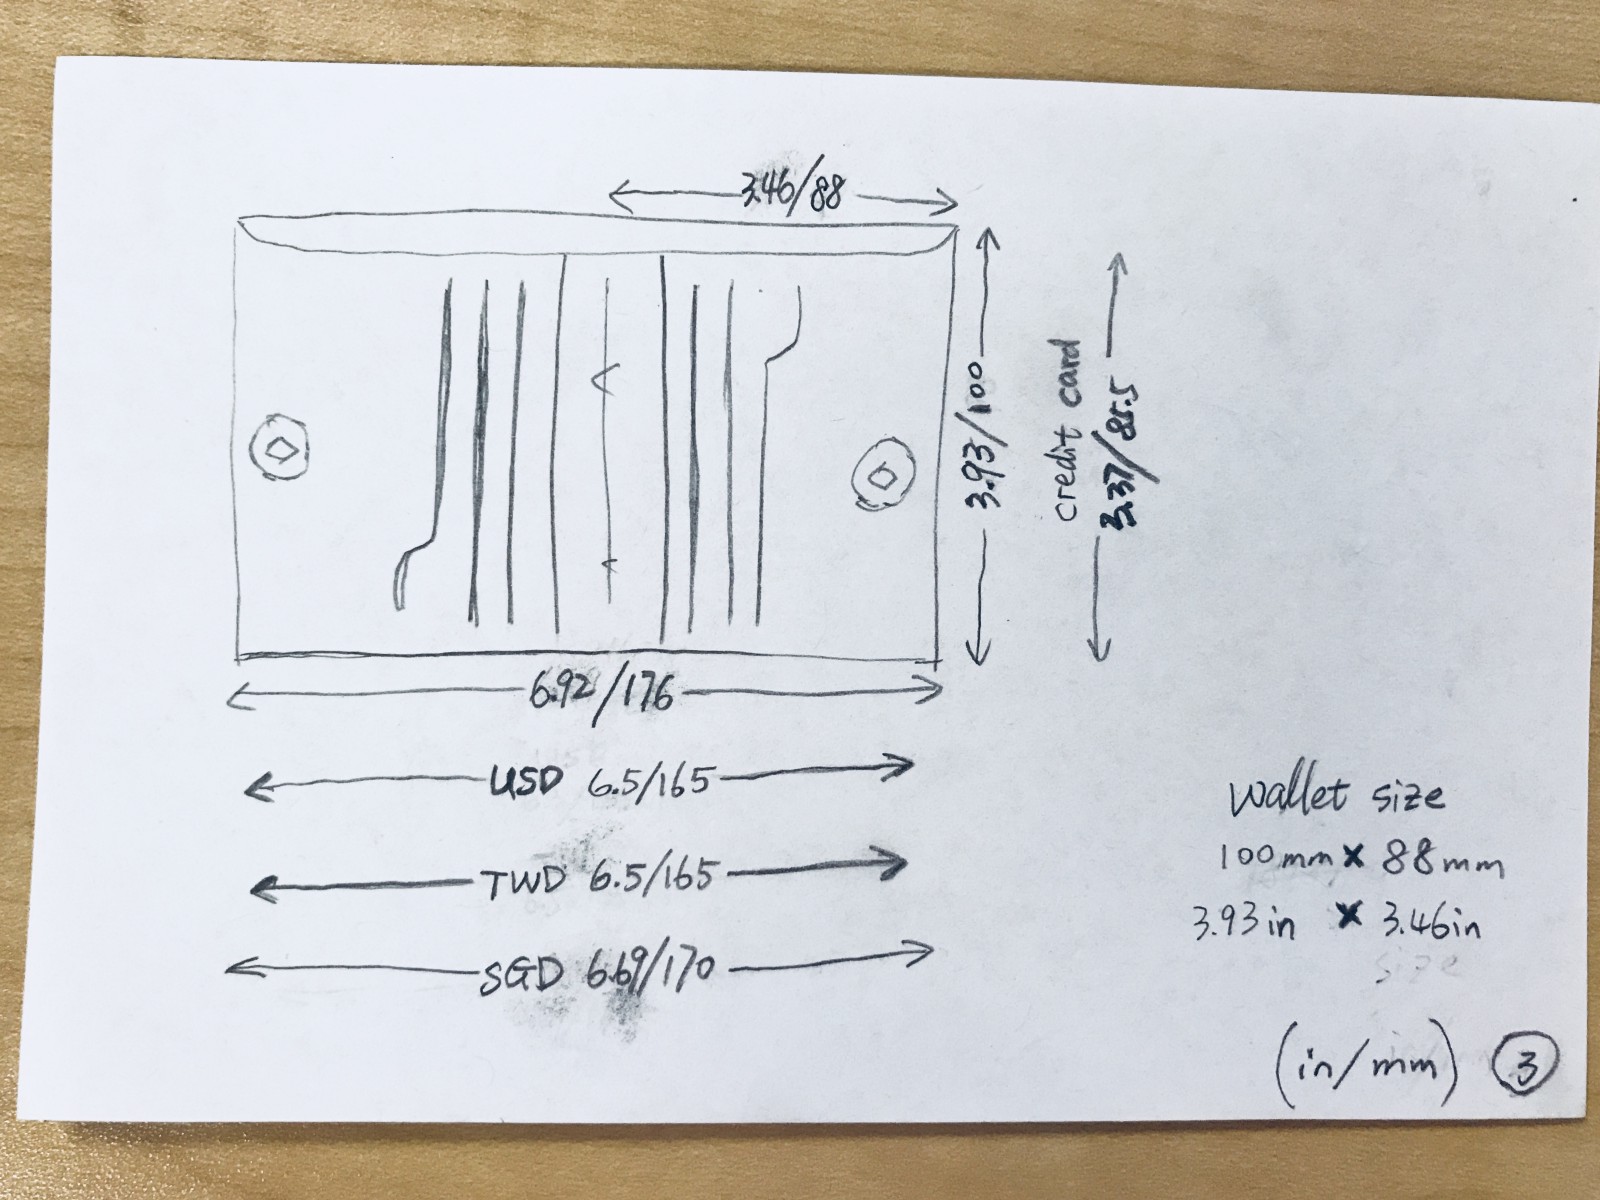 3.46/88
3.93/100
credit card
3.37/85.5
6.92/176
USD 6.5/165
TWD 6.5/165
SGD 6.69/170
wallet size
100mm x 88mm
3.93in x 3.46in
size
(in/mm) 3